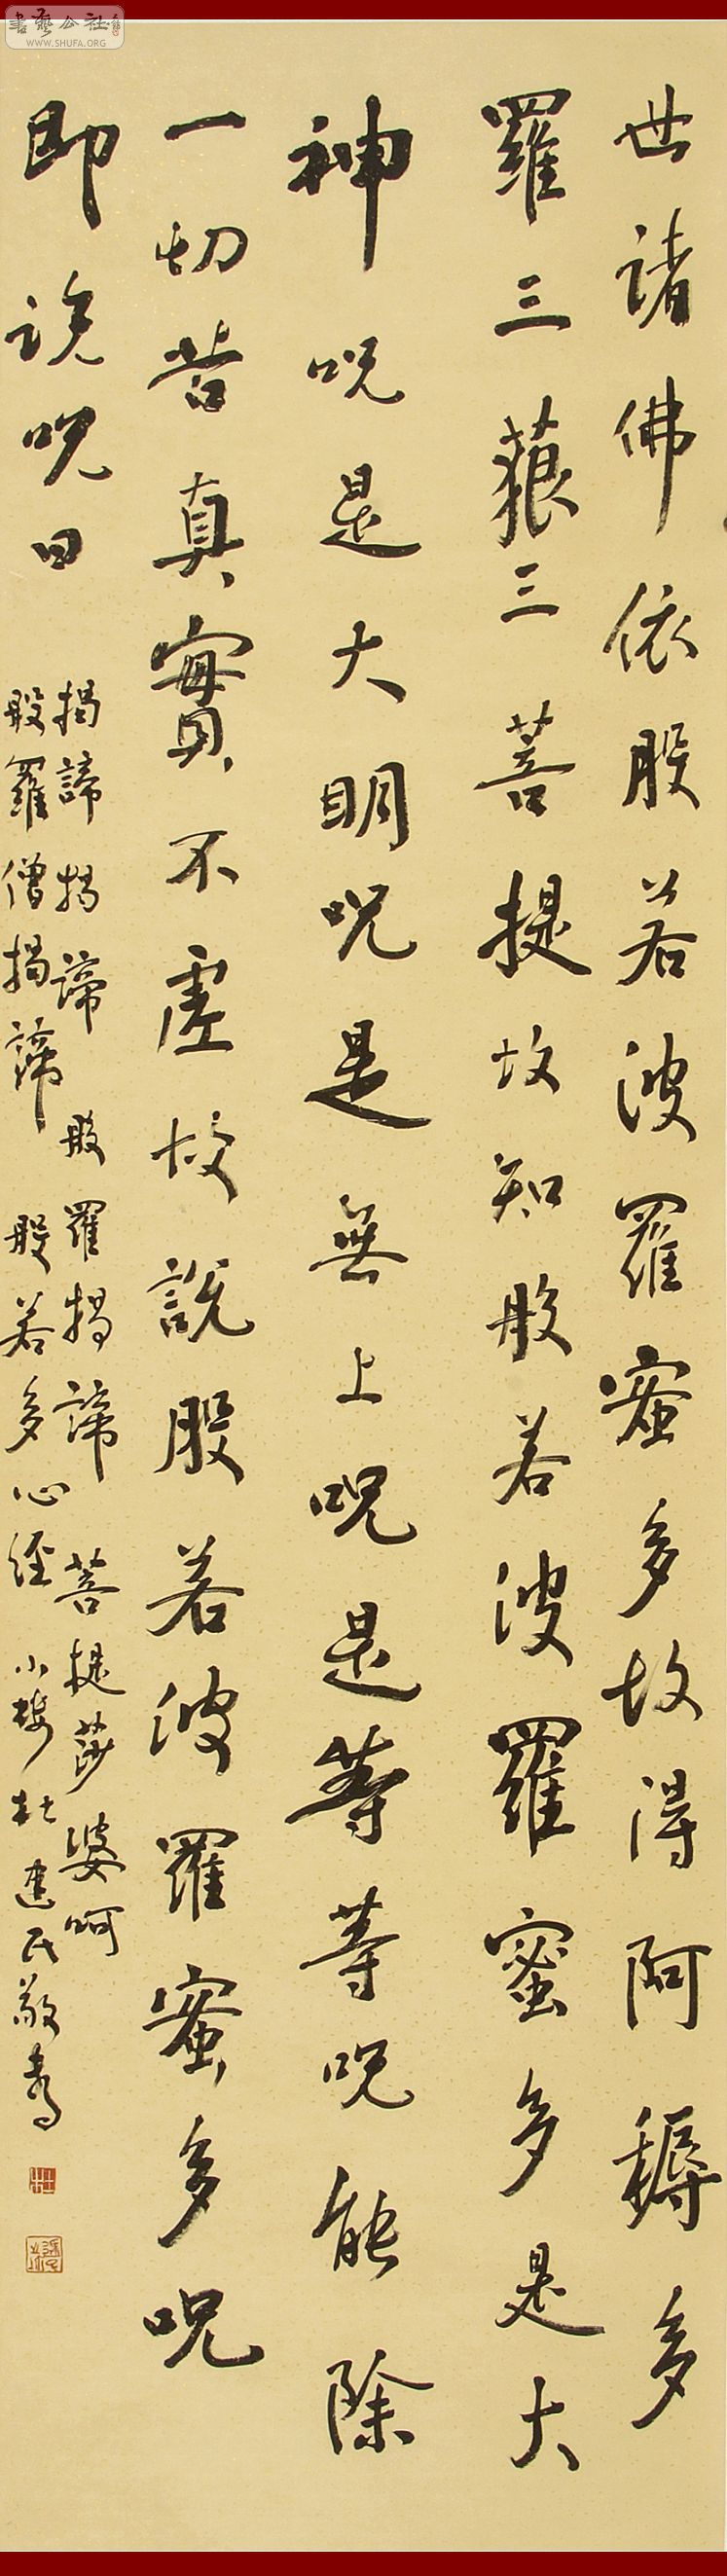 書藝公社
WWW.SHUFA.ORG
世諸佛依般若波羅蜜多故得阿耨多
羅三藐三菩提故知般若波羅蜜多是大
神呪是大明呪是無上呪是等等呪能除
一切苦真實不虛故說般若波羅蜜多呪
即說呪曰
揭諦揭諦般羅揭諦菩提莎婆呵
般羅僧揭諦般若多心經小樓杜建民敬書